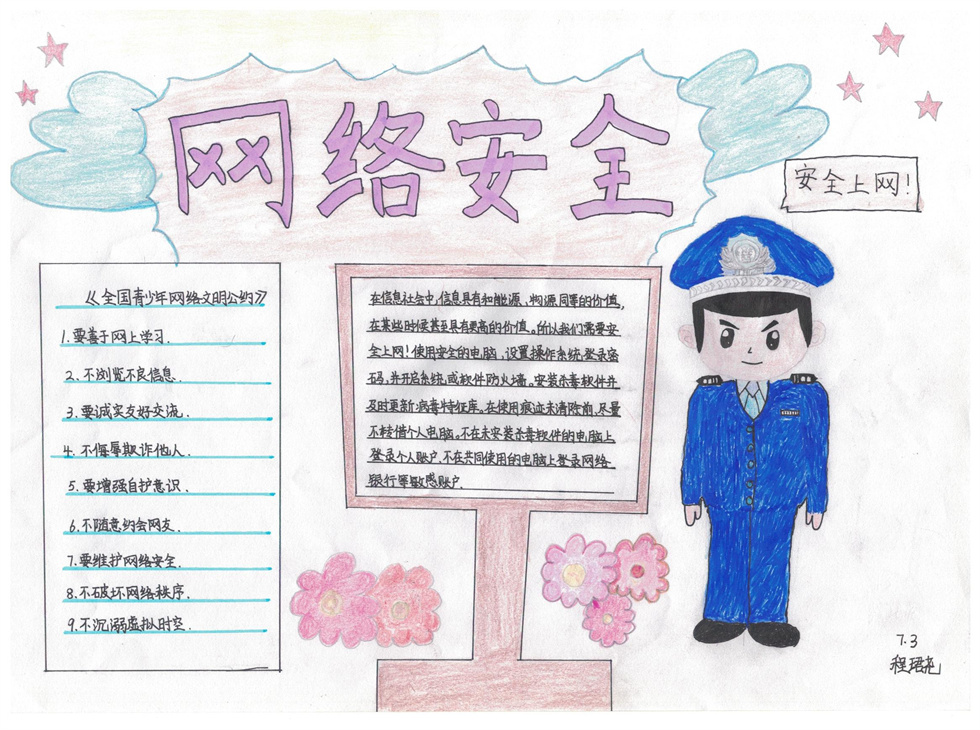 网络安全
安全上网!
《全国青少年网络文明公约》
1.要善于网上学习.
2.不浏览不良信息.
3.要诚实友好交流.
4.不侮辱欺诈他人.
5.要增强自护意识.
6.不随意约会网友.
7.要维护网络安全.
8.不破坏网络秩序.
9.不沉溺虚拟时空.
在信息社会中,信息具有和能源、物源同等的价值,
在某些时候甚至具有更高的价值。所以我们需要安
全上网!使用安全的电脑,设置操作系统登录密
码,并开启系统或软件防火墙。安装杀毒软件并
及时更新病毒特征库。在使用痕迹未清除前,尽量
不转借个人电脑。不在未安装杀毒软件的电脑上
登录个人账户,不在共同使用的电脑上登录网络
银行等敏感账户.
7.3
程珺尧